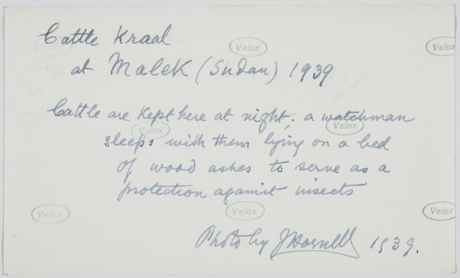 Cattle Kraal
at Malek (Sudan) 1939
Velox
Velox
Cattle are kept here at night; a watchman
Velox
Velox
sleeps with them lying on a bed
of wood ashes to serve as a
protection against insects
Velox
Velox
Velox
Photo by J Hornell 1939.